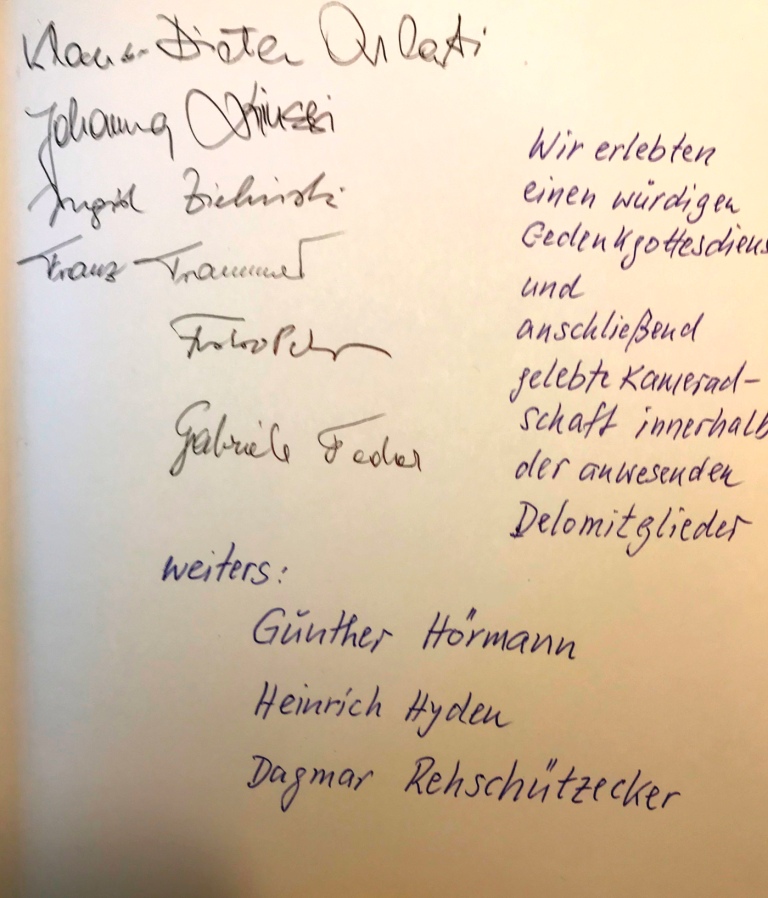 Klaus-Dieter
Johanna
Ingrid Zielinski
Franz Trammer
Gabriele Feder
Wir erlebten
einen würdigen
Gedenkgottesdiens
und
anschließend
gelebte Kamerad-
schaft innerhalb
der anwesenden
Delomitglieder
weiters:
Günther Hörmann
Heinrich Hyden
Dagmar Rehschützecker